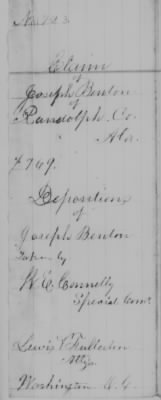 No. 723
Claim
of
Joseph Benton
of
Randolph Co.
Ala.
7769.
Deposition
of
Joseph Benton
Taken by
W. E. Connelly
Special Com'r
Lewis & Fullerton
Att'ys
Washington D.C.